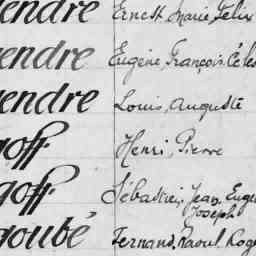 endre Ernest, Marie, Felix
endre Eugène, François, Céles
endre Louis, Auguste
goff Henri, Pierre
goff Sébastien, Jean, Eugè
Joseph
goubé Fernand, Raoul, Roge